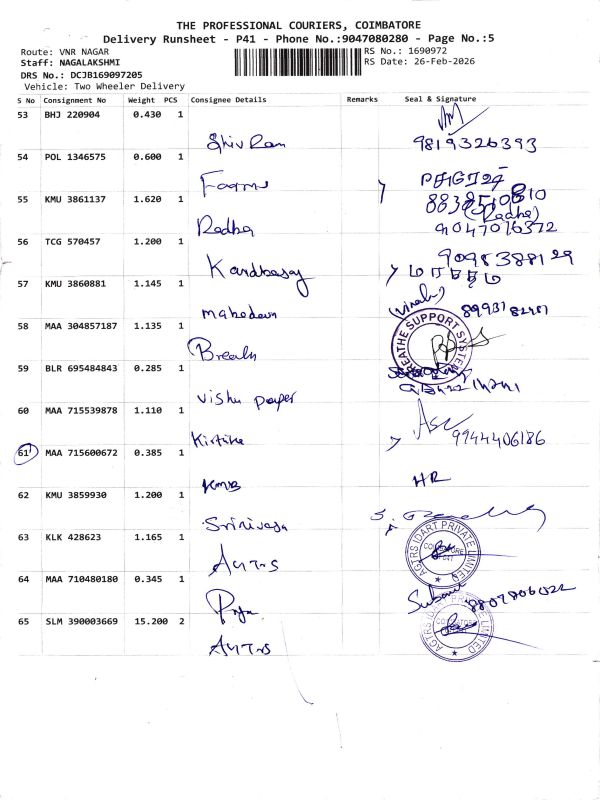 THE PROFESSIONAL COURIERS, COIMBATORE
Delivery Runsheet - P41 - Phone No.:9047080280 - Page No.:5
Route: VNR NAGAR
RS No.: 1690972
Staff: NAGALAKSHMI
RS Date: 26-Feb-2026
DRS No.: DCJB169097205
Vehicle: Two Wheeler Delivery
S No Consignment No Weight PCS Consignee Details Remarks Seal & Signature
53 BHJ 220904 0.430 1
Shiv Ram 9819326393
54 POL 1346575 0.600 1
55 KMU 3861137 1.620 1
Radha (Radha) 9047016372
56 TCG 570457 1.200 1
57 KMU 3860881 1.145 1
58 MAA 304857187 1.135 1
BREATHE SUPPORT SYSTEM
59 BLR 695484843 0.285 1
Vishu paper
60 MAA 715539878 1.110 1
Kirtika 9944406186
61 MAA 715600672 0.385 1
KMB HR
62 KMU 3859930 1.200 1
Srinivasa
63 KLK 428623 1.165 1
AGTRS IDART PRIVATE LIMITED
64 MAA 710480180 0.345 1
65 SLM 390003669 15.200 2
AGTRS IDART PRIVATE LIMITED